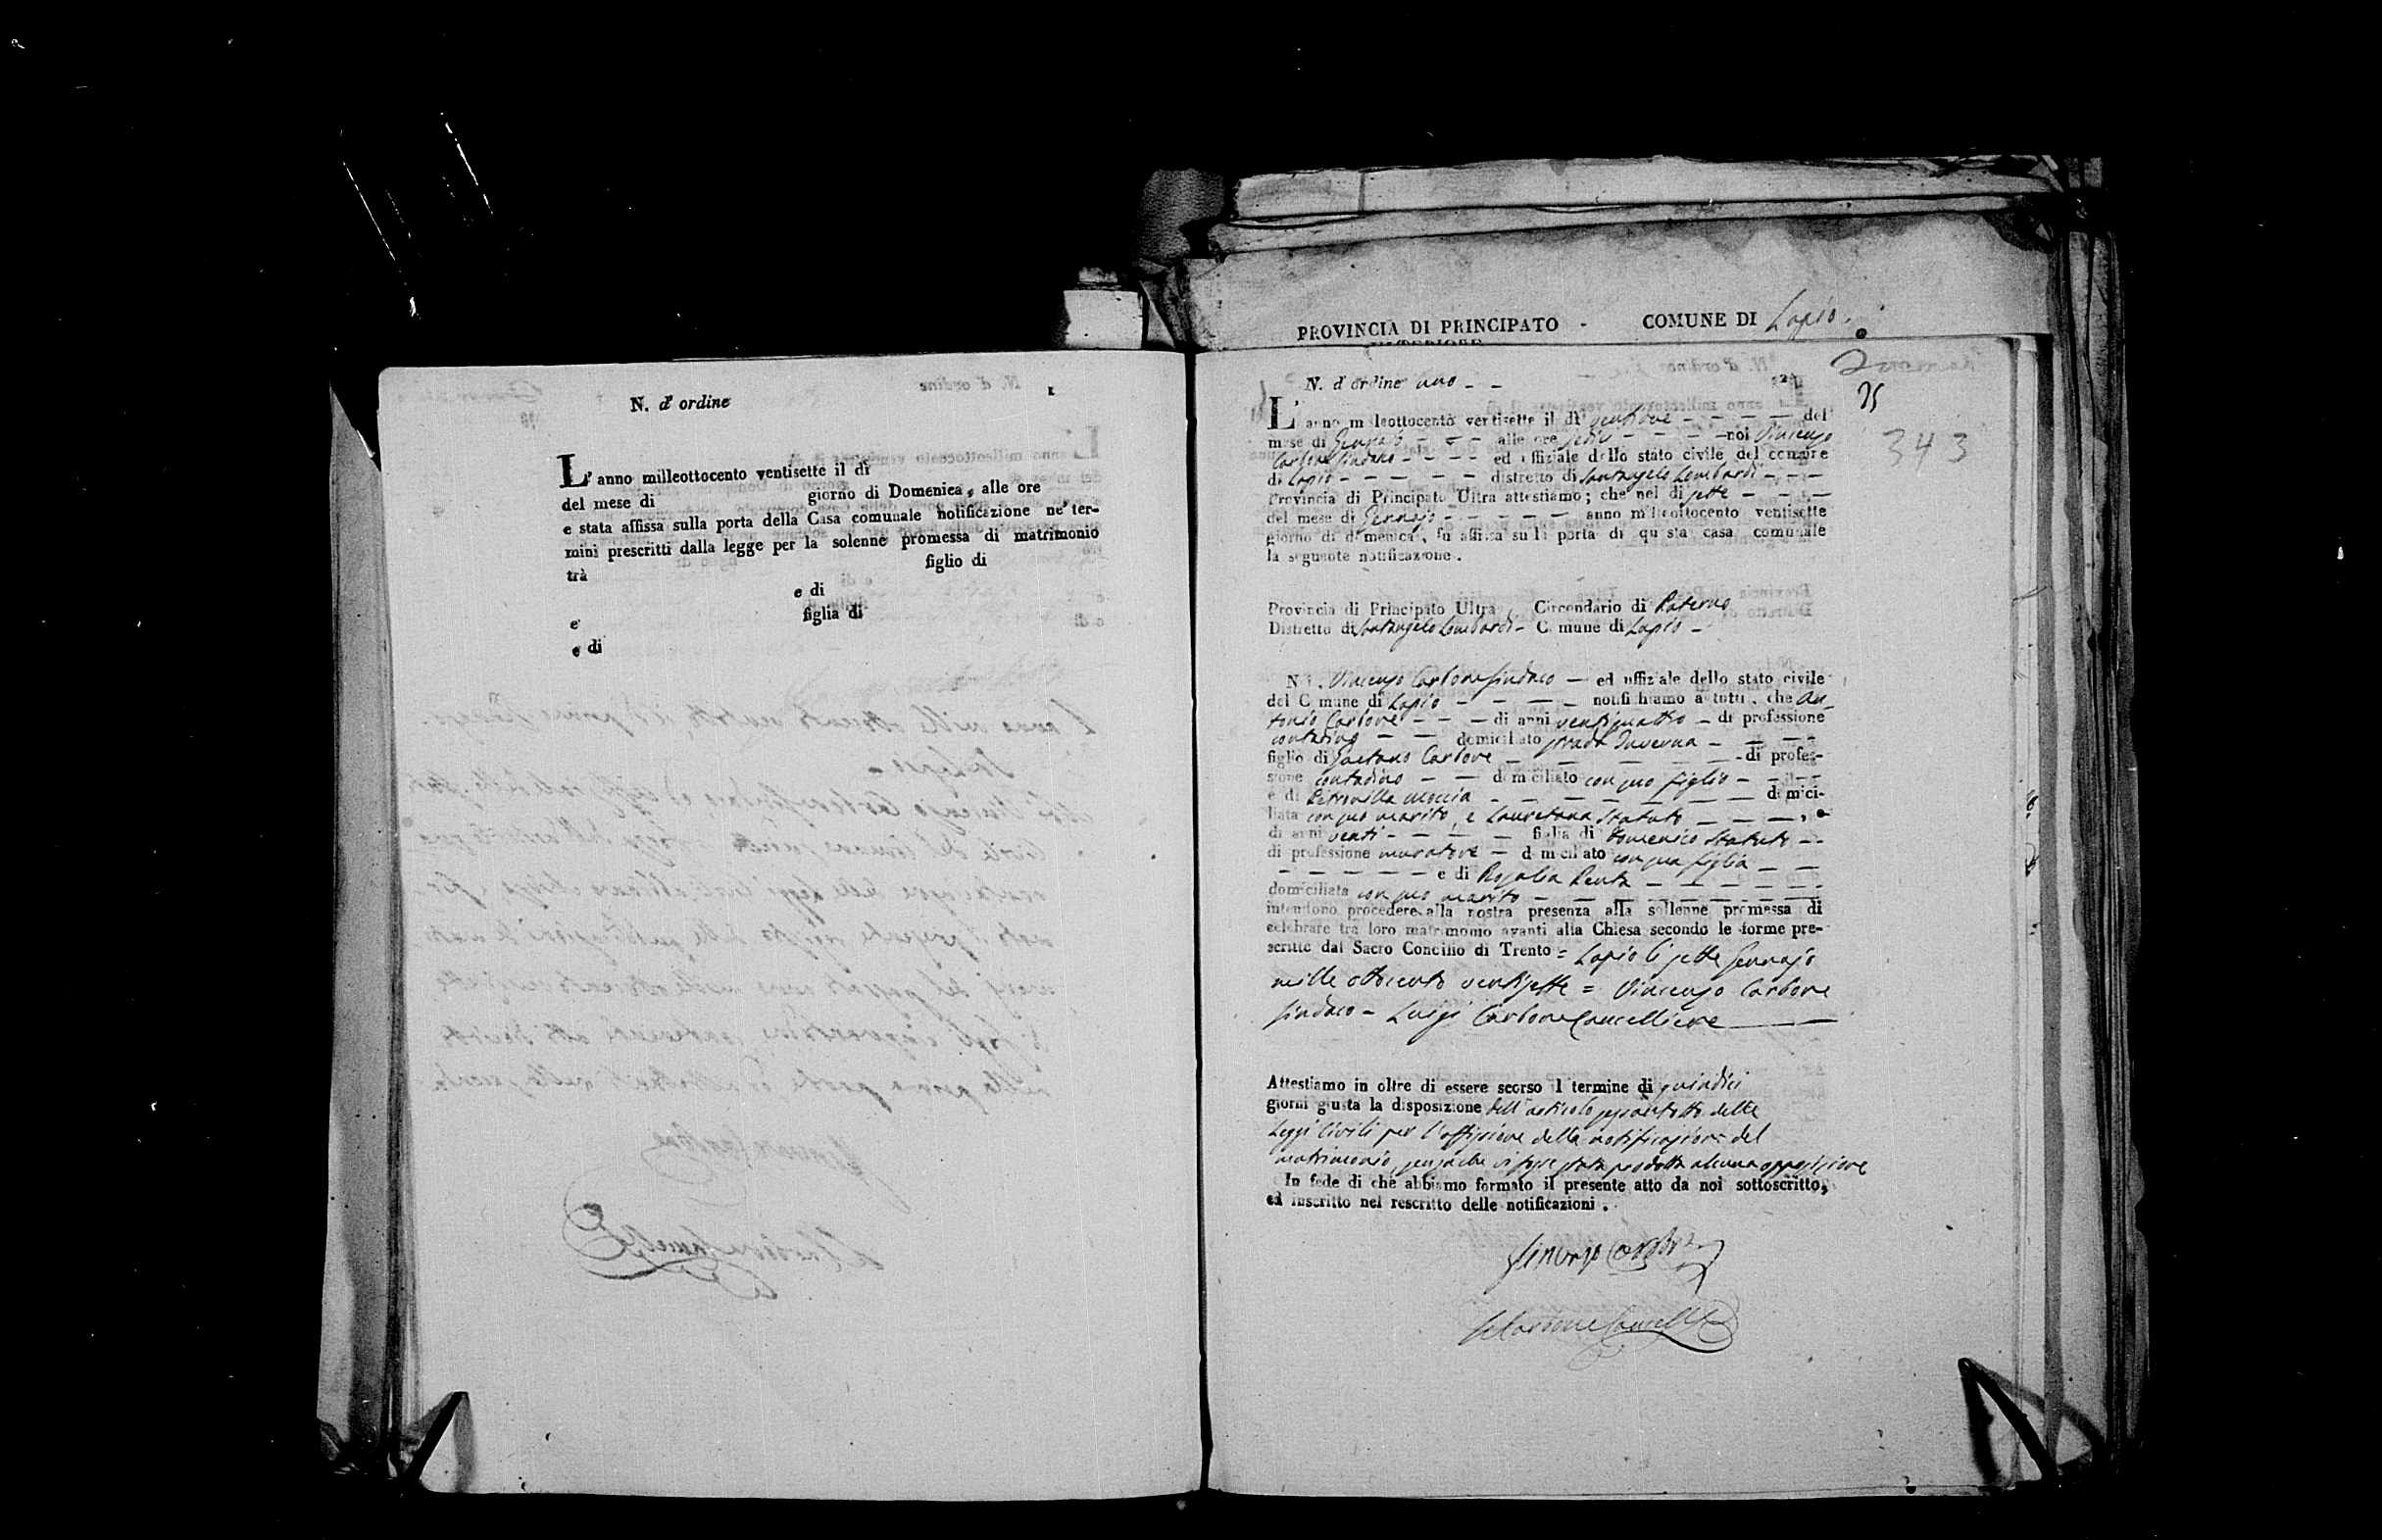 PROVINCIA DI PRINCIPATO - COMUNE DI Lapio.
N. d' ordine
1
L' anno milleottocento ventisette il dì
del mese di giorno di Domenica, alle ore
e stata affissa sulla porta della Casa comunale notificazione ne' ter-
mini prescritti dalla legge per la solenne promessa di matrimonio
trà figlio di
e di
e figlia di
e di
N. d' ordine uno - -
2
25
343
L' anno milleottocento ventisette il dì ventinove - - - - del
mese di Gennajo - - - alle ore sedici - - - - noi Vincenzo
Carbone Sindaco - - - - ed uffiziale dello stato civile del comune
di Lapio - - - - - distretto di Santangelo Lombardi - - -
Provincia di Principato Ultra attestiamo; che nel di sette - - -
del mese di Gennajo - - - - - anno milleottocento ventisette
giorno di domenica, fu affissa sulla porta di questa casa comunale
la seguente notificazione.
Provincia di Principato Ultra Circondario di Paterno
Distretto di Santangelo Lombardi - Comune di Lapio -
Noi, Vincenzo Carbone Sindaco - ed uffiziale dello stato civile
del Comune di Lapio - - - - - notifichiamo a tutti, che An_
tonio Carbone - - - di anni ventiquattro - di professione
contadino - - domiciliato strada - - - -
figlio di Gaetano Carbone - - - - - - di profes-
sione contadino - - domiciliato con suo figlio - - - -
e di Petronilla Moccia - - - - - - - domici-
liata con suo marito, e Lauretana Statuto - - - , e
di anni venti - - - - - figlia di Domenico Statuto - -
di professione muratore - domiciliato con sua figlia - -
- - - - - - e di Rosalia Penta - - - - - -
domiciliata con suo marito - - - - - - - -
intendono procedere alla nostra presenza alla sollenne promessa di
celebrare tra loro matrimonio avanti alla Chiesa secondo le forme pre-
scritte dal Sacro Concilio di Trento = Lapio li sette Gennajo
mille ottocento ventisette = Vincenzo Carbone
Sindaco - Luigi Carbone Cancelliere
Attestiamo in oltre di essere scorso il termine di quindici
giorni giusta la disposizione dell'articolo sessantotto delle
Leggi Civili per l'affissione della notificazione del
matrimonio, senzache vi fosse stata prodotta alcuna opposizione
In fede di che abbiamo formato il presente atto da noi sottoscritto,
ed inscritto nel rescritto delle notificazioni.
Vincenzo Carbone
L Carbone Cancelle